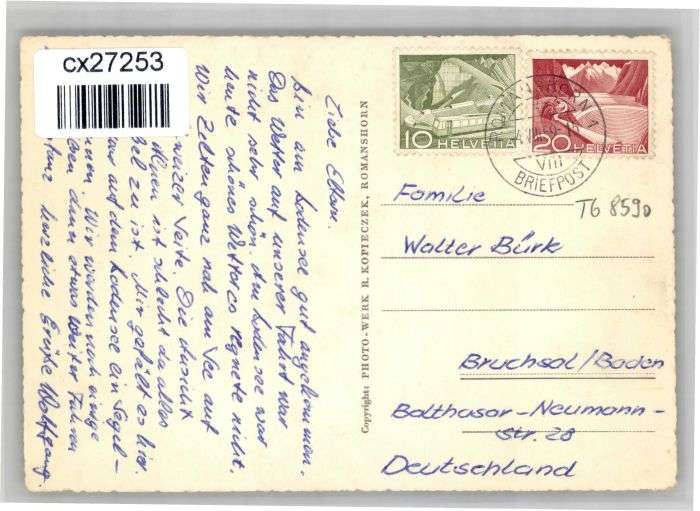 cx27253
10 HELVETIA
20 HELVETIA
ROMANSHORN 1
VIII
BRIEFPOST
TG 8590
Familie
Walter Bürk
Bruchsal/Baden
Balthasar-Neumann-
Str. 28
Deutschland
Copyright: PHOTO-WERK R. KOPIECZEK, ROMANSHORN
Liebe Eltern.
bin am Bodensee gut angekommen.
Das Wetter auf unserer Fahrt war
nicht sehr schön. Am Bodensee war
heute schönes Wetter es regnete nicht.
Wir Zelten ganz nah am See auf
weizer Seite. Die Aussicht
ist schlecht da alles
zu ist. Mir gefält es hier.
auf dem Bodensee ein Segel-
nnen. Wir werden noch einige
ben dann etwas weiter Fahren
herzliche Grüße Wolfgang.